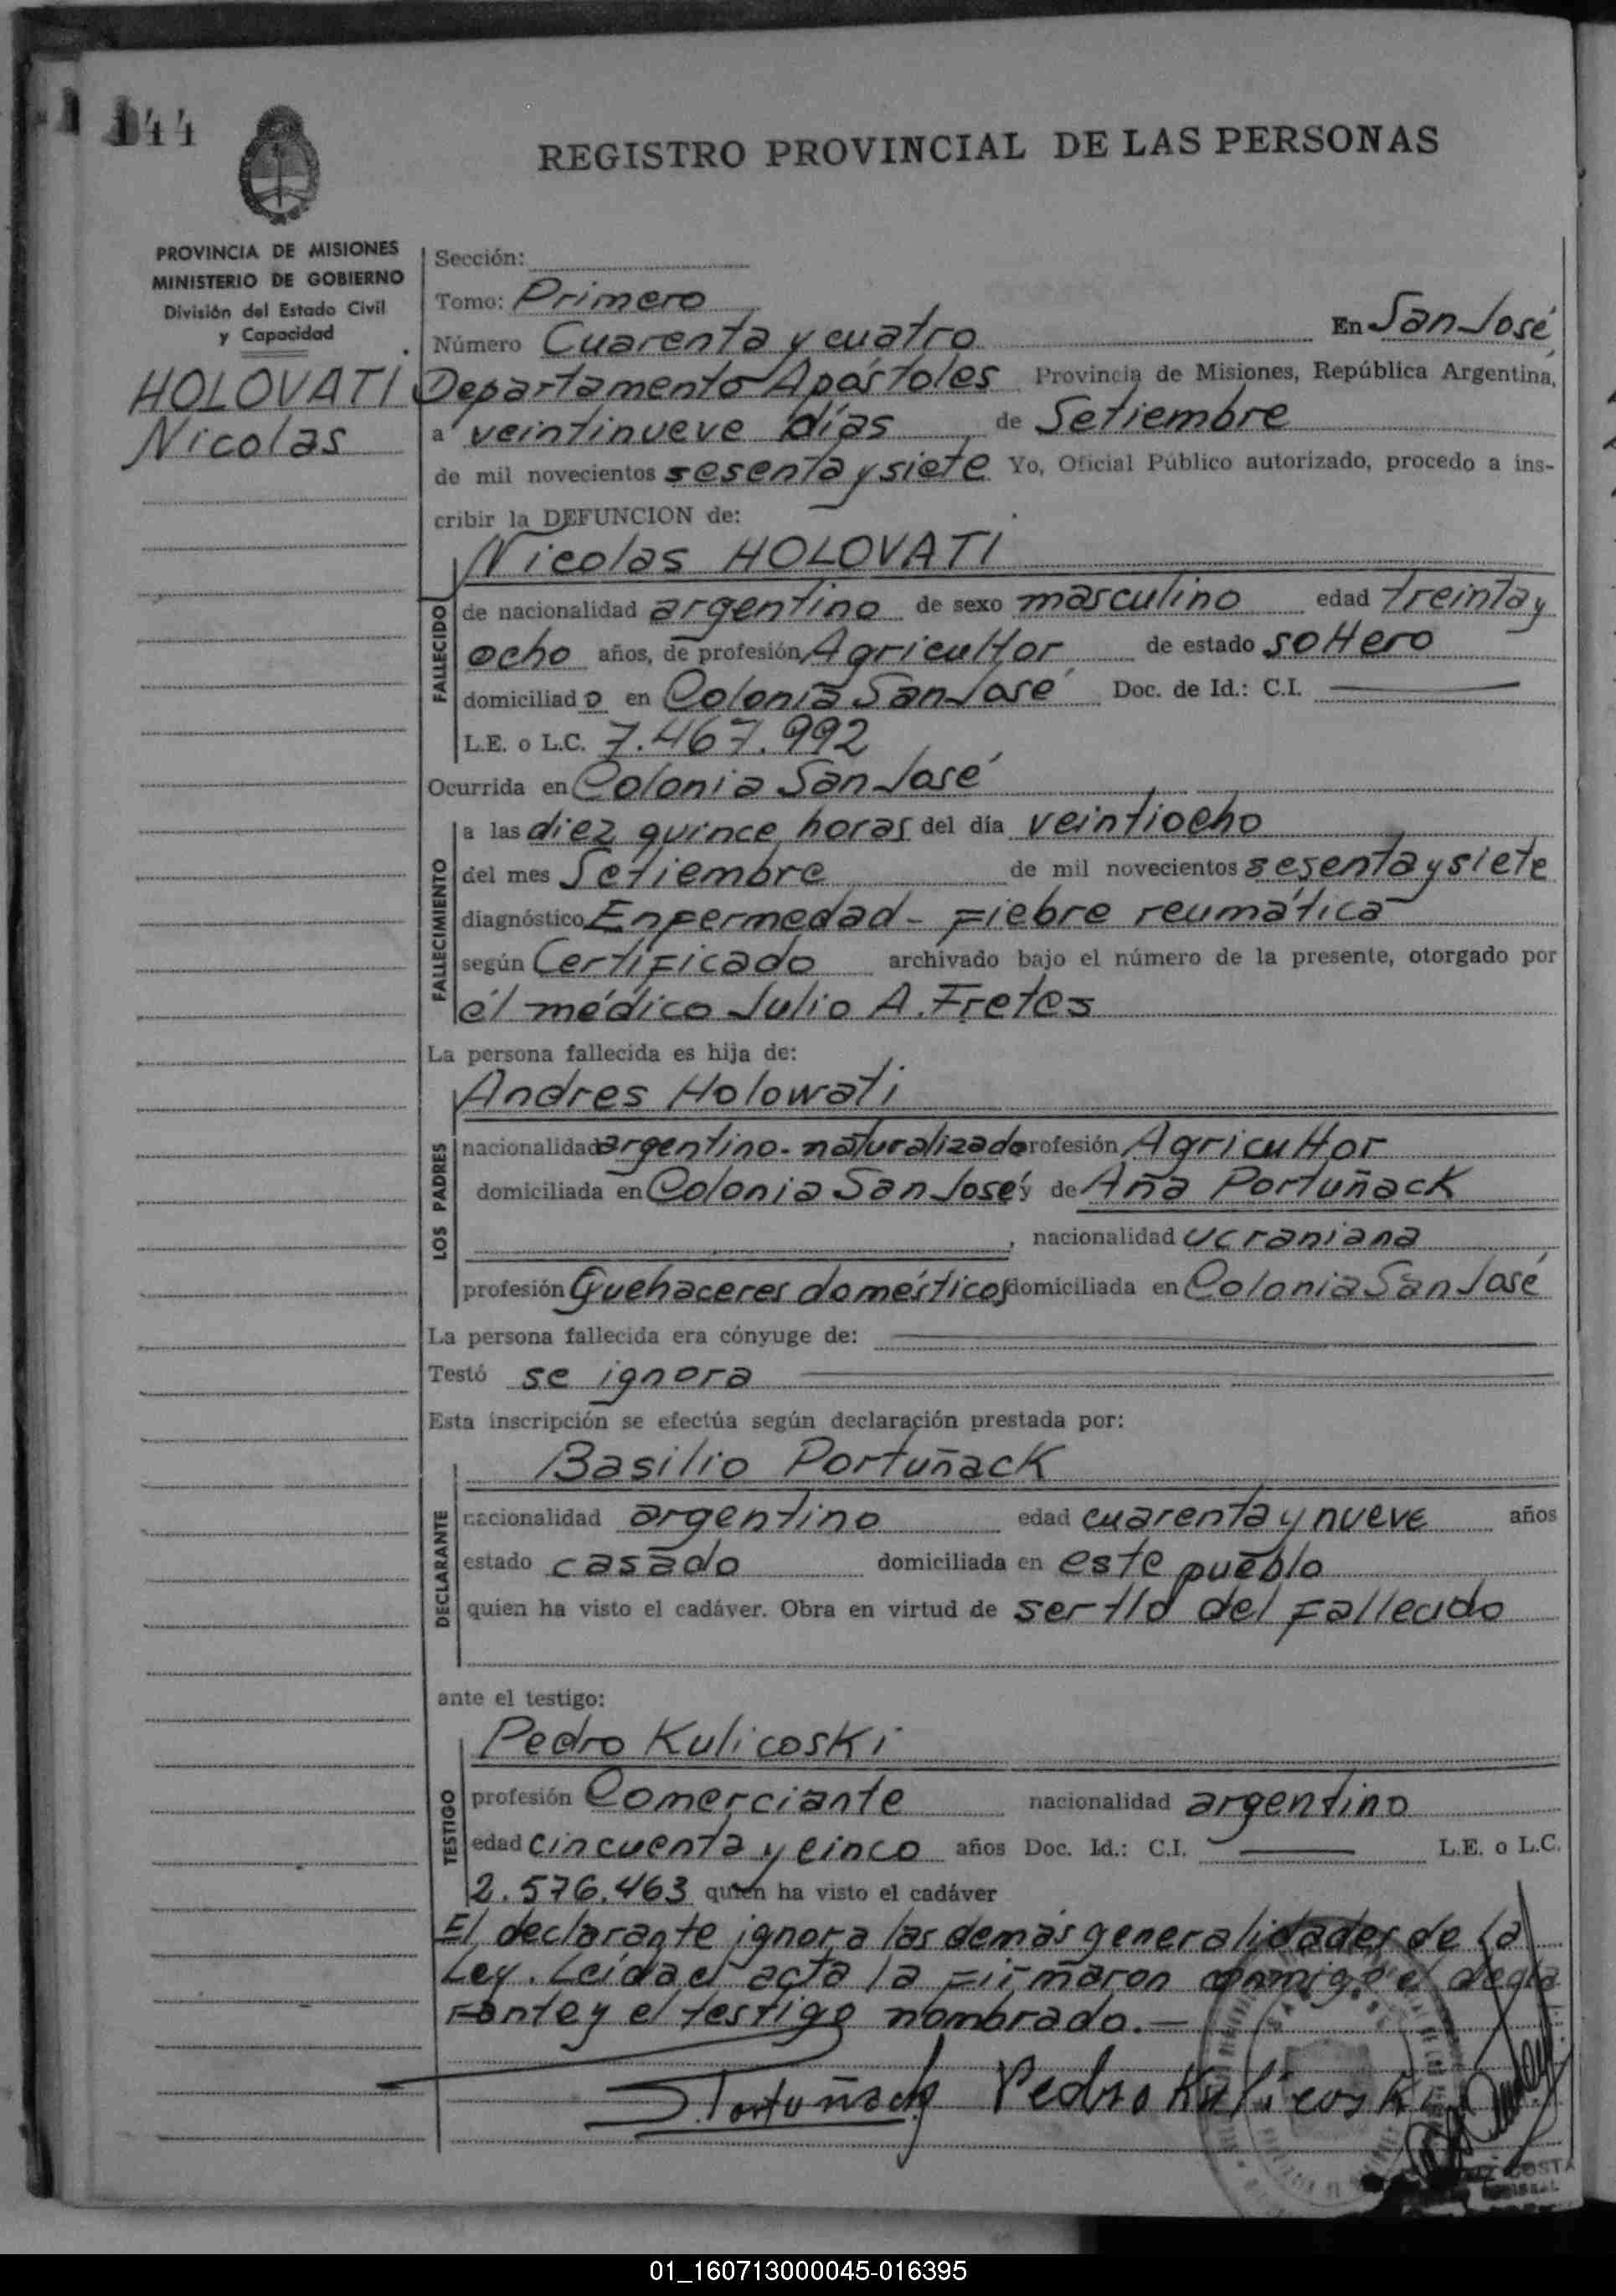 144
REGISTRO PROVINCIAL DE LAS PERSONAS
PROVINCIA DE MISIONES
MINISTERIO DE GOBIERNO
División del Estado Civil
y Capacidad
HOLOVATI
Nicolas
Sección:
Tomo: Primero
Número Cuarenta y cuatro En San José
Departamento Apóstoles Provincia de Misiones, República Argentina,
a veintinueve días de Setiembre
de mil novecientos sesenta y siete Yo, Oficial Público autorizado, procedo a ins-
cribir la DEFUNCION de:
Nicolas HOLOVATI
FALLECIDO
de nacionalidad argentino de sexo masculino edad treinta y
ocho años, de profesión Agricultor de estado soltero
domiciliado en Colonia San José Doc. de Id.: C.I.
L.E. o L.C. 7.467.992
Ocurrida en Colonia San José
FALLECIMIENTO
a las diez quince horas del día veintiocho
del mes Setiembre de mil novecientos sesenta y siete
diagnóstico Enfermedad - Fiebre reumática
según Certificado archivado bajo el número de la presente, otorgado por
él médico Julio A. Fretes
La persona fallecida es hija de:
Andres Holowati
LOS PADRES
nacionalidad argentino-naturalizado profesión Agricultor
domiciliada en Colonia San José y de Aña Portuñack
, nacionalidad ucraniana
profesión Quehaceres domésticos domiciliada en Colonia San José
La persona fallecida era cónyuge de:
Testó se ignora
Esta inscripción se efectúa según declaración prestada por:
Basilio Portuñack
DECLARANTE
nacionalidad argentino edad cuarenta y nueve años
estado casado domiciliada en este pueblo
quien ha visto el cadáver. Obra en virtud de ser tío del fallecido
ante el testigo:
Pedro Kulicoski
TESTIGO
profesión Comerciante nacionalidad argentino
edad cincuenta y cinco años Doc. Id.: C.I. L.E. o L.C.
2.576.463 quien ha visto el cadáver
El declarante ignora las demás generalidades de la
Ley. Leída el acta la firmaron conmigo el decla
rante y el testigo nombrado.—
Portuñack Pedro Kulicoski
COSTA
01_160713000045-016395